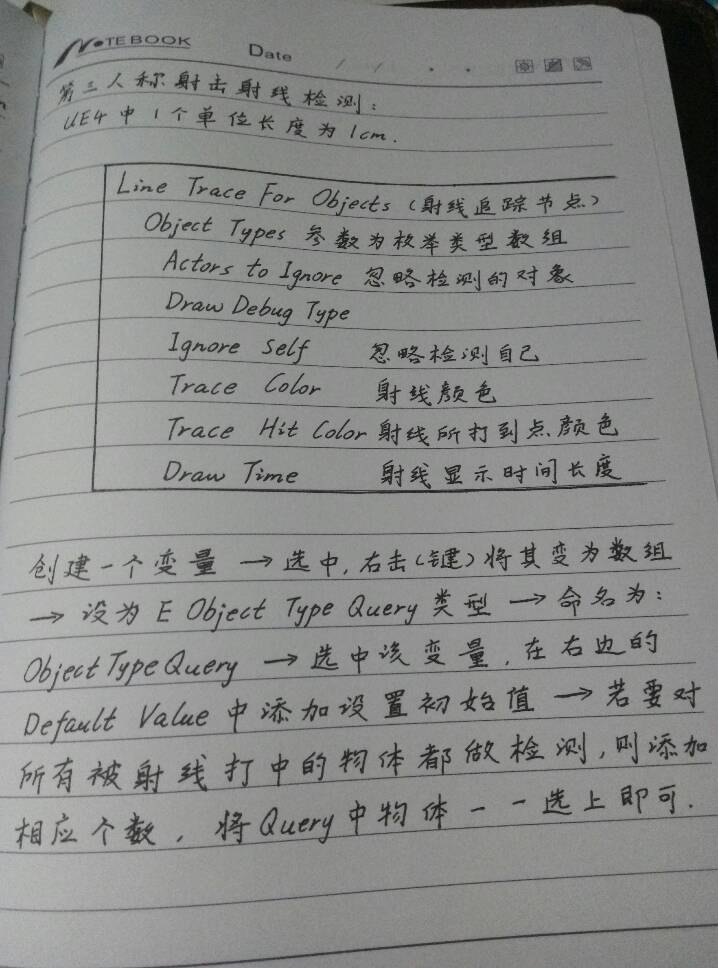 NOTEBOOK
Date / / . .
第三人称射击射线检测:
UE4中1个单位长度为1cm.
Line Trace For Objects (射线追踪节点)
Object Types 参数为枚举类型数组
Actors to Ignore 忽略检测的对象
Draw Debug Type
Ignore Self 忽略检测自己
Trace Color 射线颜色
Trace Hit Color 射线所打到点颜色
Draw Time 射线显示时间长度
创建一个变量 → 选中,右击(键)将其变为数组
→ 设为 E Object Type Query 类型 → 命名为:
ObjectTypeQuery → 选中该变量,在右边的
Default Value 中添加设置初始值 → 若要对
所有被射线打中的物体都做检测,则添加
相应个数,将Query中物体一一选上即可.